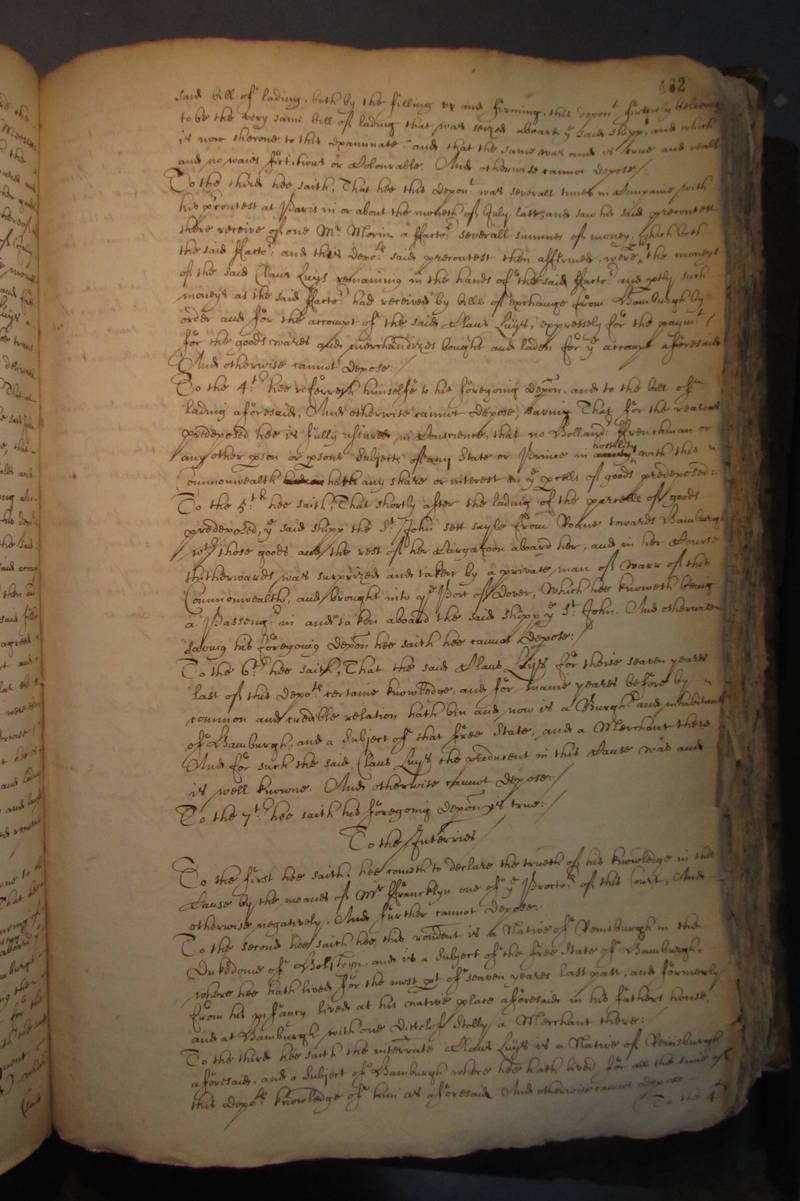 462
said bill of lading, both by the filling up and firming, this depont further beleeving
to be the very same bill of lading that was seized aboard ye said shipp, and which
is now shewne to this examinate, and that the same was and is true and reall
and no waies fictitious or Colourable. And otherwise cannot depose./
To the third hee saith, That hee this depont was severall times in Companie with
his precontest at Paris in or about the moneth of July last, and saw his said precontest
there receive of one Mr Morin a ffactor severall summes of money, which both
the said ffactor and this depots said precontest then affirmed, were the moneys
of the said Claus Luÿs remaining in the hands of the said ffactor and such
moneys as the said ffactor had received by bills of exchange from Hamburgh by
order and for the accompt of the said Claus Luÿs, expressely for the paymt
for the goods wares and merchandizes bought and laden for ye accompt aforesaid
And otherwise cannot depose./
To the 4th hee referreth himselfe to his foregoing depon, and to the bill of
lading aforesaid, And otherwise cannot depose, saving That for the reasons
predeposed hee is fully assured in Conscience, that no Hollander, ffrenchman or
any other pson or psons Subjects of any State or Prince in hostility with this
Commonwealth hath any share or interest in ye pcells of goods predeposed:
To the 5th hee saith, That shortly after the lading of the parcells of goods
predeposed, ye said shipp the St John sett sayle from Roane towards Hamburgh
wth those goods and the rest of her Cargazoen aboard her, and in her Course
thitherwards was surprized and taken by a private man of Warr of this
Commonwealth, and brought into ye Port of Dover, Which hee knoweth being
a Passengr in and taken aboard the said shipp ye St John. And otherwise
saving his foregoing depon hee saith hee cannot depose:/
To the 6th hee saith, That the said Claus Luÿs for theise seaven yeares
last of this depots certaine knowledge, and for yeares before by
common and credible relation hath bin and now is a Burgher and inhabitant
of Hamburgh, and a Subject of that free State, and a Merchant there
And for such the said Claus Luÿs the producent in this Cause was and
is well knowne. And otherwise cannot depose:/
To the 7th hee saith his foregoing depon is true:/
To the Interries
To the first hee saith, hee cometh to declare the trueth of his knowledge in this
Cause by the meanes of Mr ffrancklyn one of ye Proctors of this Court, And
otherwise negatively. And further cannot depose:
To the second hee saith hee this rondent is a Native of Rensburgh in the
Dukedome of Holsteyn, and is a Subject of the free State of Hamburgh
where hee hath lived for the most pt of seaven yeares last past, and formerly
from his infancy lived at his native place aforesaid in his fathers house,
and at Hamburgh with one Dittelof a Merchant there:/
To the third hee saith the interrate Claus Luÿs is a Native of Rensburgh
aforesaid, and a Subject of Hamburgh where hee hath lived for all the time of
this depots knowledge of him as aforesaid. And otherwise cannot depose
To the 4th